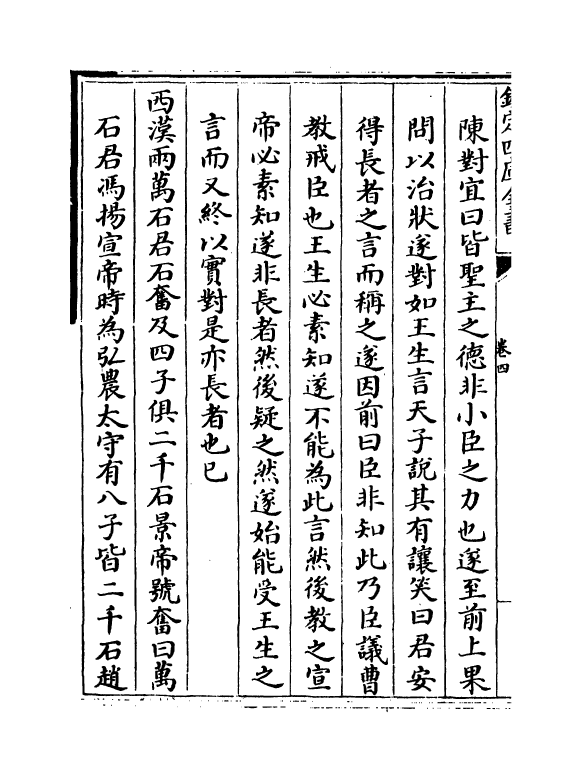 欽定四庫全書
卷四
陳對宜曰皆聖主之德非小臣之力也遂至前上果
問以治狀遂對如王生言天子說其有讓笑曰君安
得長者之言而稱之遂因前曰臣非知此乃臣議曹
教戒臣也王生必素知遂不能為此言然後教之宣
帝必素知遂非長者然後疑之然遂始能受王生之
言而又終以實對是亦長者也已
西漢兩萬石君石奮及四子俱二千石景帝號奮曰萬
石君馮揚宣帝時為弘農太守有八子皆二千石趙